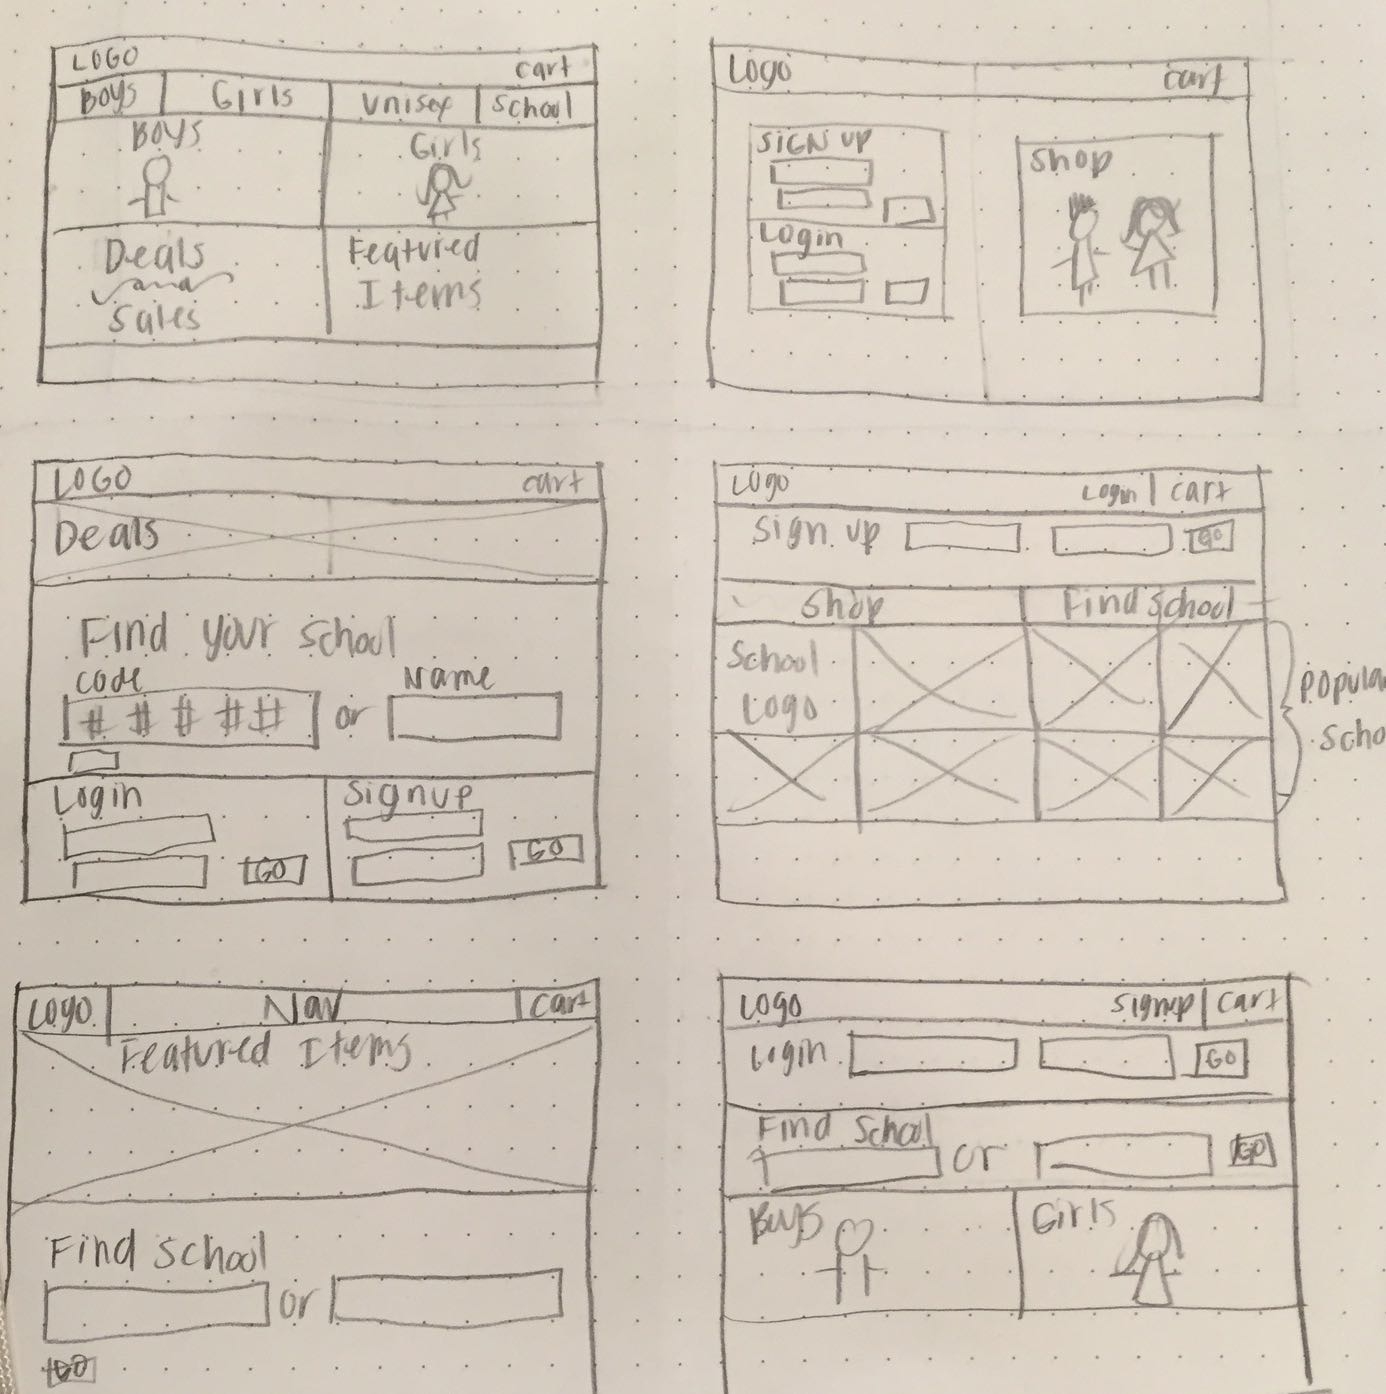 LOGO
cart
Boys Girls Unisex School
Boys Girls
Deals
and
Sales
Featured
Items
Logo
cart
SIGN UP
Login
Shop
LOGO
cart
Deals
Find your school
code Name
# # # # # or
Login Signup
GO GO
Logo
Login | cart
Sign up GO
Shop Find School
School
Logo
Logo Nav cart
Featured Items
Find School
or
GO
Logo
Signup | cart
Login GO
Find School
or GO
Boys Girls